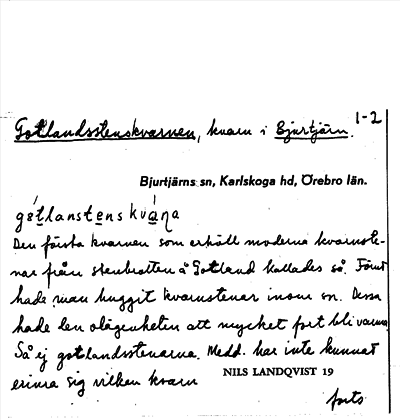 1-2
Gotlandsstenskvarnen, kvarn i Bjurtjärn.
Bjurtjärns sn, Karlskoga hd, Örebro län.
gɵ́tlanstenskvá̱ɳa
Den första kvarnen som erhöll moderna kvarnste-
nar från stenbrotten å Gotland kallades så. Förut
hade man huggit kvarnstenar inom sn. Dessa
hade den olägenheten att mycket fort bli varma.
Så ej gotlandsstenarna. Medd. har inte kunnat
erinra sig vilken kvarn
NILS LANDQVIST 19
forts